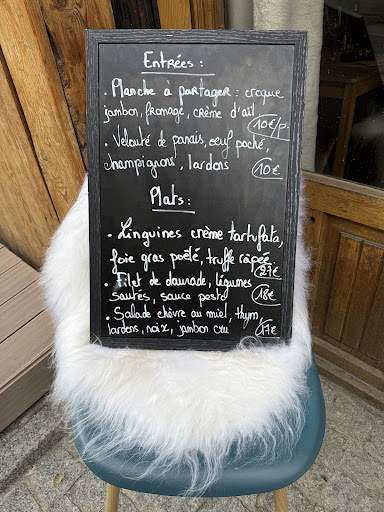 Entrées :
. Planche à partager : croque
jambon, fromage, crème d'ail
10€/p.
. Velouté de panais, œuf poché,
champignons, lardons 10€
Plats :
. Linguines crème tartufata,
foie gras poêlé, truffe râpée.
27€
. Filet de daurade, légumes
sautés, sauce pesto 18€
. Salade chèvre au miel, thym,
lardons, noix, jambon cru 17€